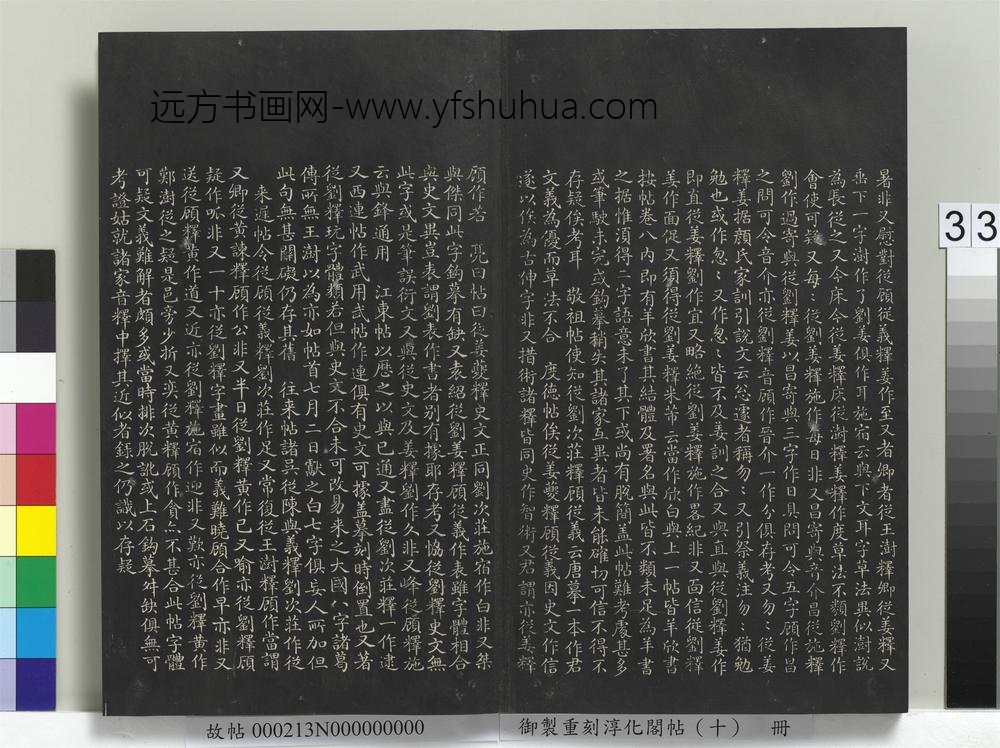 远方书画网-www.yfshuhua.com
暑非又慰對從顧從義釋姜作至又者卿者從王澍釋卿從姜釋又
缶下一字澍作了劉姜俱作耳施宿云與下文耳字草法異似澍說
為長從之又今床今從姜釋底從澍釋姜釋作度草法不類劉釋作
會使可疑又每〻從劉姜釋施作每日非又昌寄與音介昌從施釋
劉作過寄與從劉釋姜以昌寄與三字作日具問可令五字顧作昌
之問可令音介亦從劉釋音顧作晉介一作分俱存考又勿〻從姜
釋姜据顏氏家訓引說文云忩遽者稱勿〻又引祭義注勿〻猶勉
勉也或作忽〻又作怱〻皆不及姜訓之合又與直與從劉釋姜作
即直從姜釋劉作宜又略絶從劉姜釋施作畧紀非又面信從劉釋
姜作面促又須得從劉姜釋米芾云當作欣白與上一帖皆羊欣書
按帖卷八內即有羊欣書其結體及署名與此皆不類未足為羊書
之据惟須得二字語意未了其下或尚有脫簡蓋此帖難考處甚多
或筆駛未完或鈎摹稍失其諸家互異者皆未能確切可信不得不
存疑俟考耳 敬祖帖使知從劉次莊釋顧從義云唐摹一本作君
文義為優而草法不合 庾德帖俟從姜夔釋顧從義因史文作信
遂以俟為古伸字非又措術諸釋皆同史作智術又君謂亦從姜釋
顧作若 亮曰帖曰從姜夔釋史文正同劉次莊施宿作白非又桀
與傑同此字鈎摹有缺又表紹從劉姜釋顧從義作表雖字體相合
與史文異豈表謂劉表作書者别有據耶存考又恊從劉釋史文無
此字或是筆誤衍文又與從史文及姜釋劉作久非又峰從顧釋施
云與鋒通用 江東帖以歷之以與已通又盡從劉次莊釋一作逮
又西連帖作武用武帖作連俱有史文可據蓋摹刻時倒置也又若
從劉釋玩字體類若但與史文不合未可改易来之大國八字諸葛
傳所無王澍以為亦如帖首七月二日獻之白七字俱妄人所加但
此句無甚關礙仍存其舊 往来帖諸㠯從陳與義釋劉次莊作從
来遲帖今從顧從義釋劉次莊作足又常復從王澍釋顧作當謂
又卿從黄諫釋顧作公非又半日從劉釋黄作已又喻亦從劉釋顧
疑作听非又一十亦從劉釋字畫雖似而義難曉顧合作早亦非又
送從顧釋黄作道又近亦從劉釋施宿作迎非又歎亦從劉釋黄作
鄰澍從之又疑是邑旁少折又奕從黄釋顧作貪亦不甚合此帖字體
可疑文義難解者頗多或當時排次脫訛或上石鈎摹舛缺俱無可
考證姑就諸家音釋中擇其近似者録之仍識以存疑
33
故帖 000213N000000000
御製重刻淳化閣帖（十） 冊